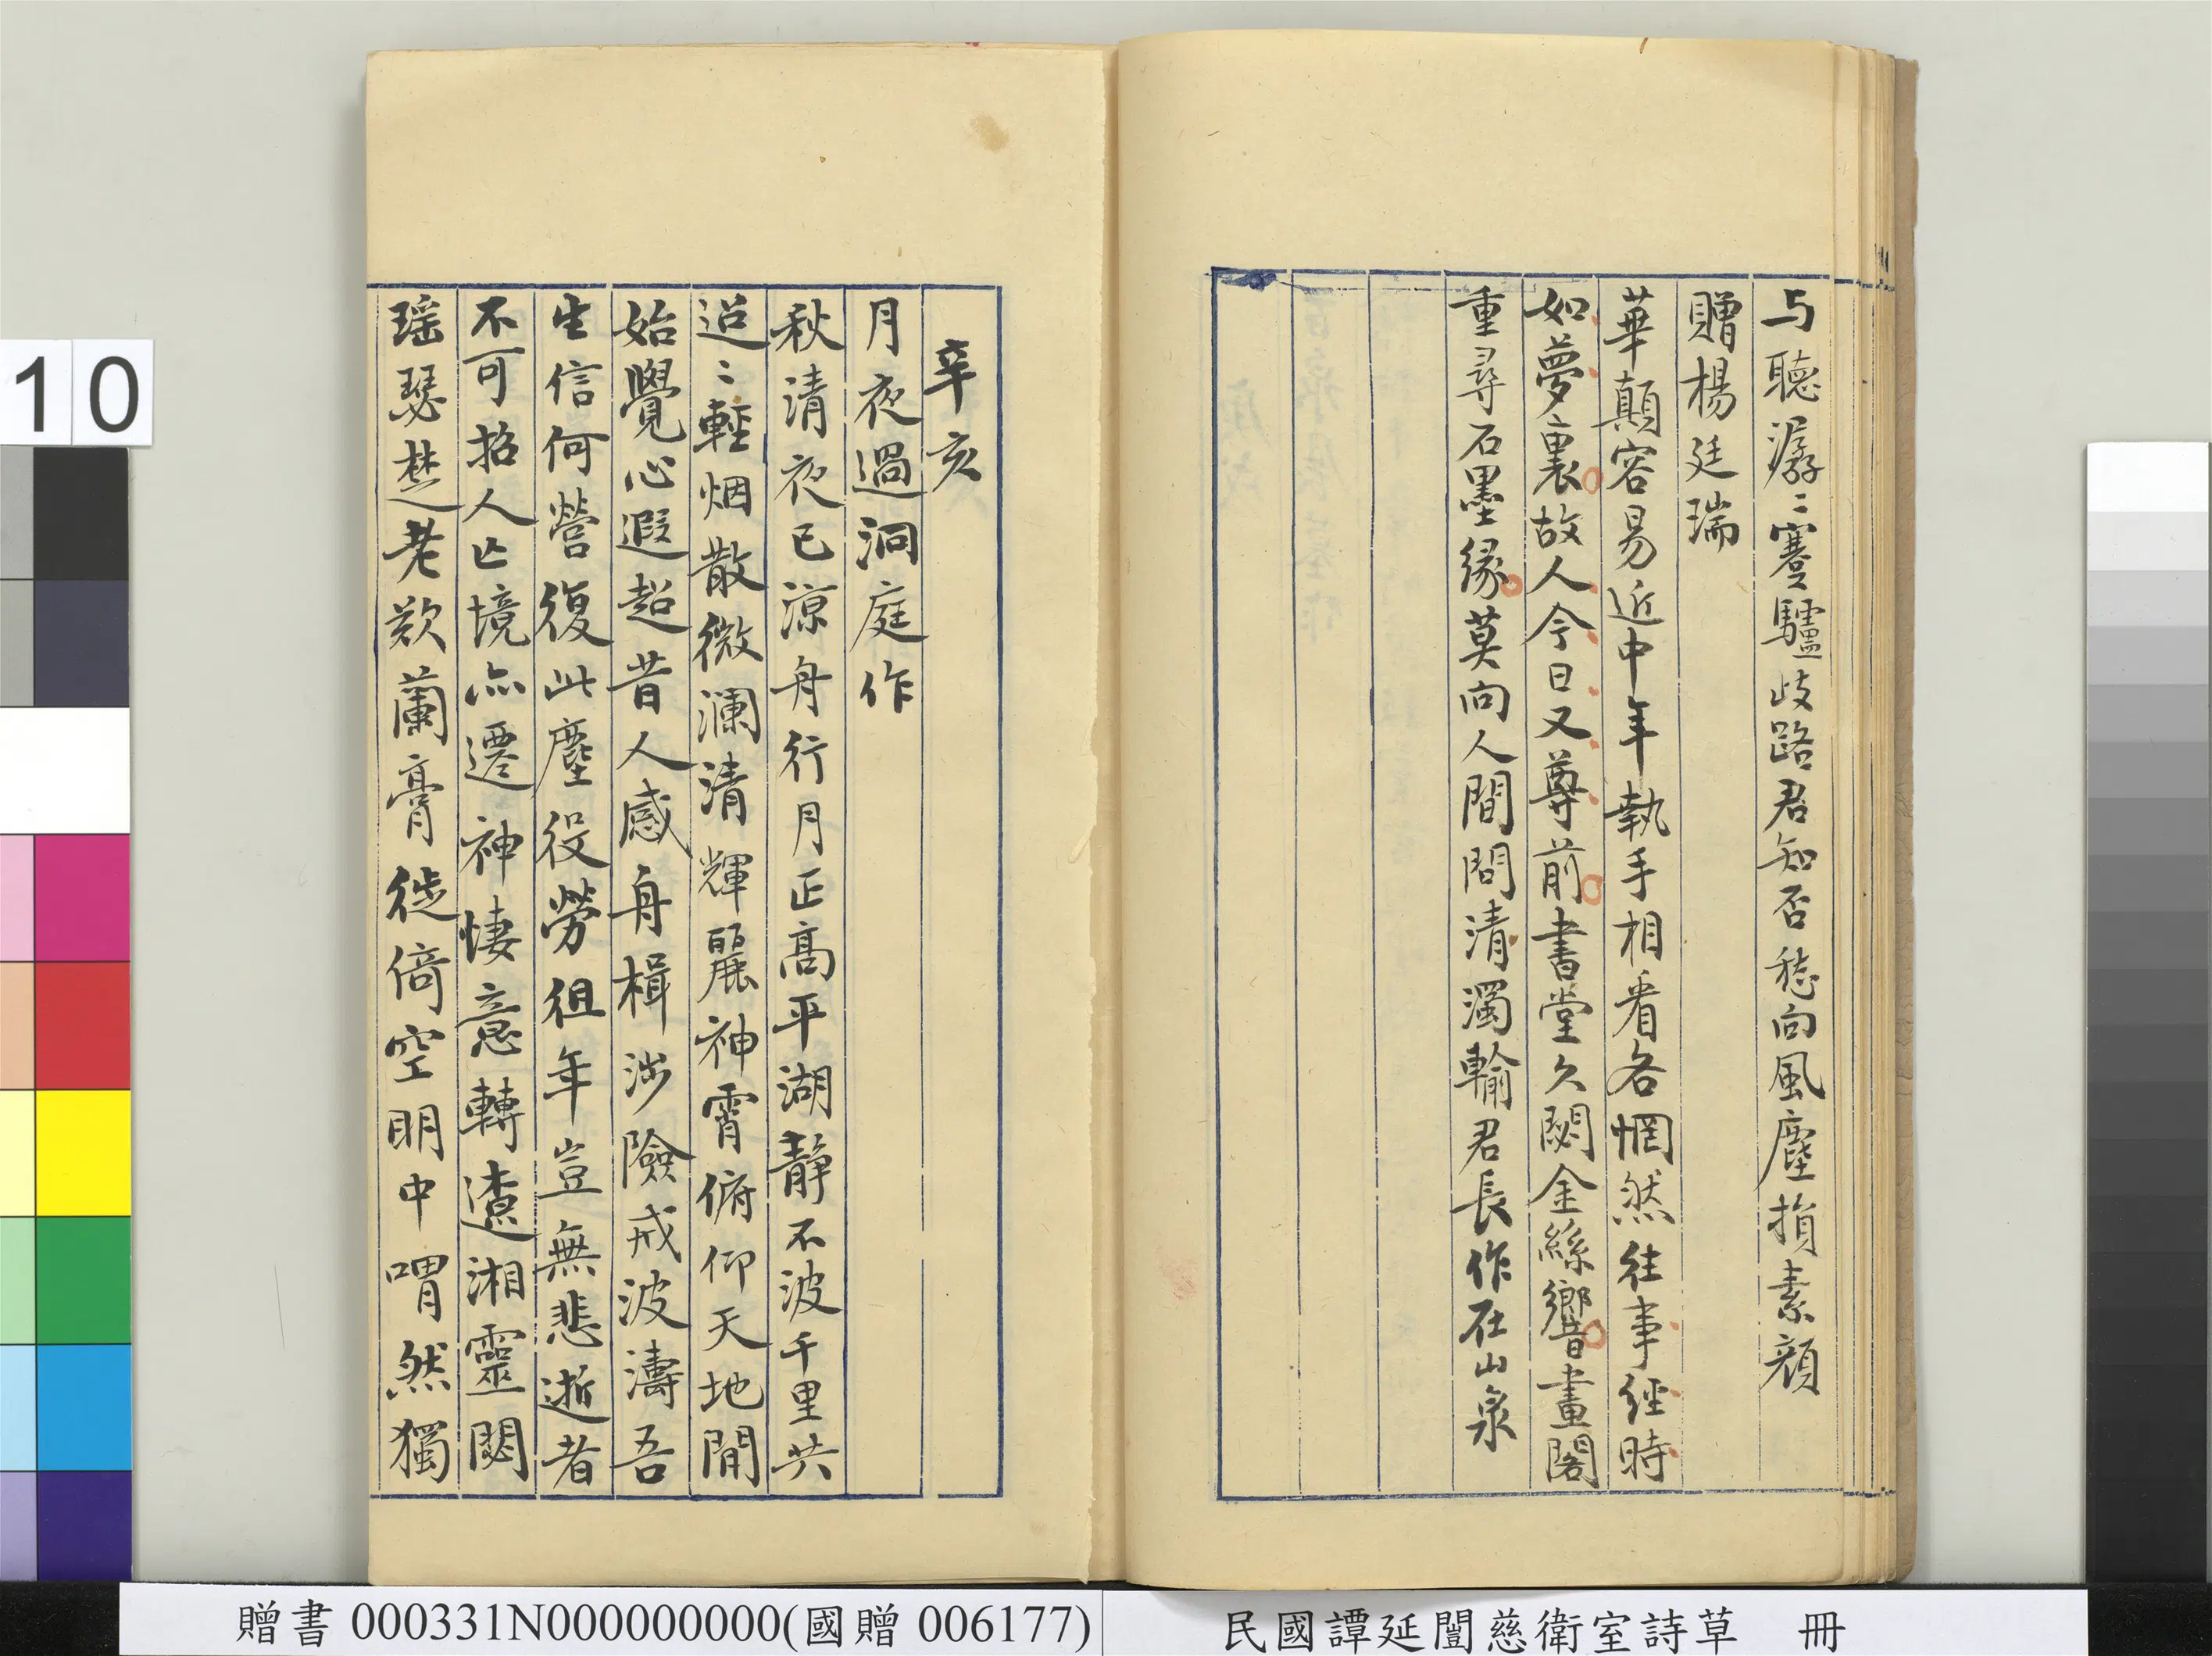 与聽潺〻蹇驢歧路君知否愁向風塵損素顔
贈楊廷瑞
華顛容易近中年執手相看各惘然往事經時
如夢裏故人今日又尊前書堂久閟金絲響畫閣
重尋石墨緣莫向人間問清濁輸君長作在山泉
辛亥
月夜過洞庭作
秋清夜已涼舟行月正高平湖靜不波千里共
迢〻輕烟散微瀾清輝麗神霄俯仰天地間
始覺心遐超昔人感舟楫涉險戒波濤吾
生信何營復此塵役勞徂年豈無悲逝者
不可招人亡境亦遷神悽意轉遼湘靈閟
瑶瑟楚老歎蘭膏徙倚空明中喟然獨
10
贈書 000331N000000000(國贈 006177)
民國譚延闓慈衛室詩草 冊